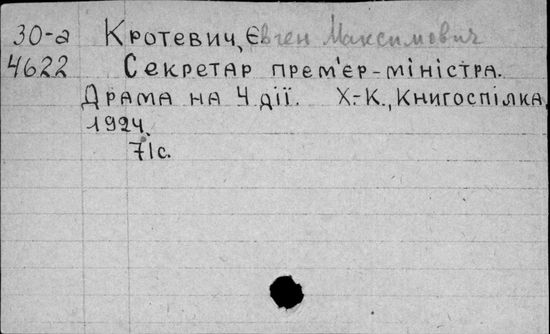 30-а Кротевич, Євген Максимович
4622 Секретар прем'єр-міністра.
Драма на 4 дії. Х.-К., Книгоспілка,
1924.
71с.